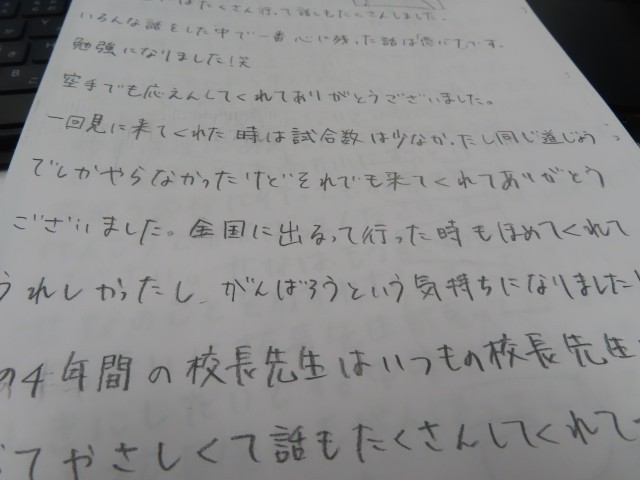 はたくさん行って話しもたくさんしました。
いろんな話をした中で一番心に残った話は です。
勉強になりました!笑
空手でも応えんしてくれてありがとうございました。
一回見に来てくれた時は試合数は少なかったし同じ道じょう
でしかやらなかったけどそれでも来てくれてありがとう
ございました。全国に出るって行った時もほめてくれて
うれしかったし、がんばろうという気持ちになりました!
の4年間の校長先生はいつもの校長先生
てやさしくて話もたくさんしてくれて